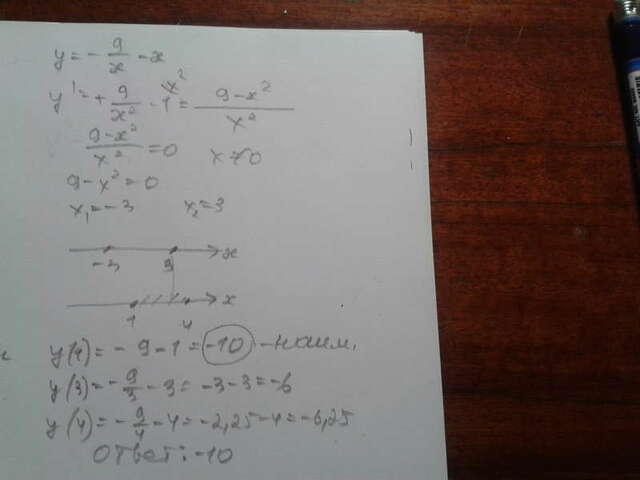 y = - 9/x - x
y' = + 9/x² - 1 = (9 - x²)/x²
(9 - x²)/x² = 0 x ≠ 0
9 - x² = 0
x₁ = -3 x₂ = 3
-3 3 x
1 4 x
y(1) = - 9 - 1 = -10 - наим.
y(3) = - 9/3 - 3 = -3 - 3 = -6
y(4) = - 9/4 - 4 = -2,25 - 4 = -6,25
Ответ: -10